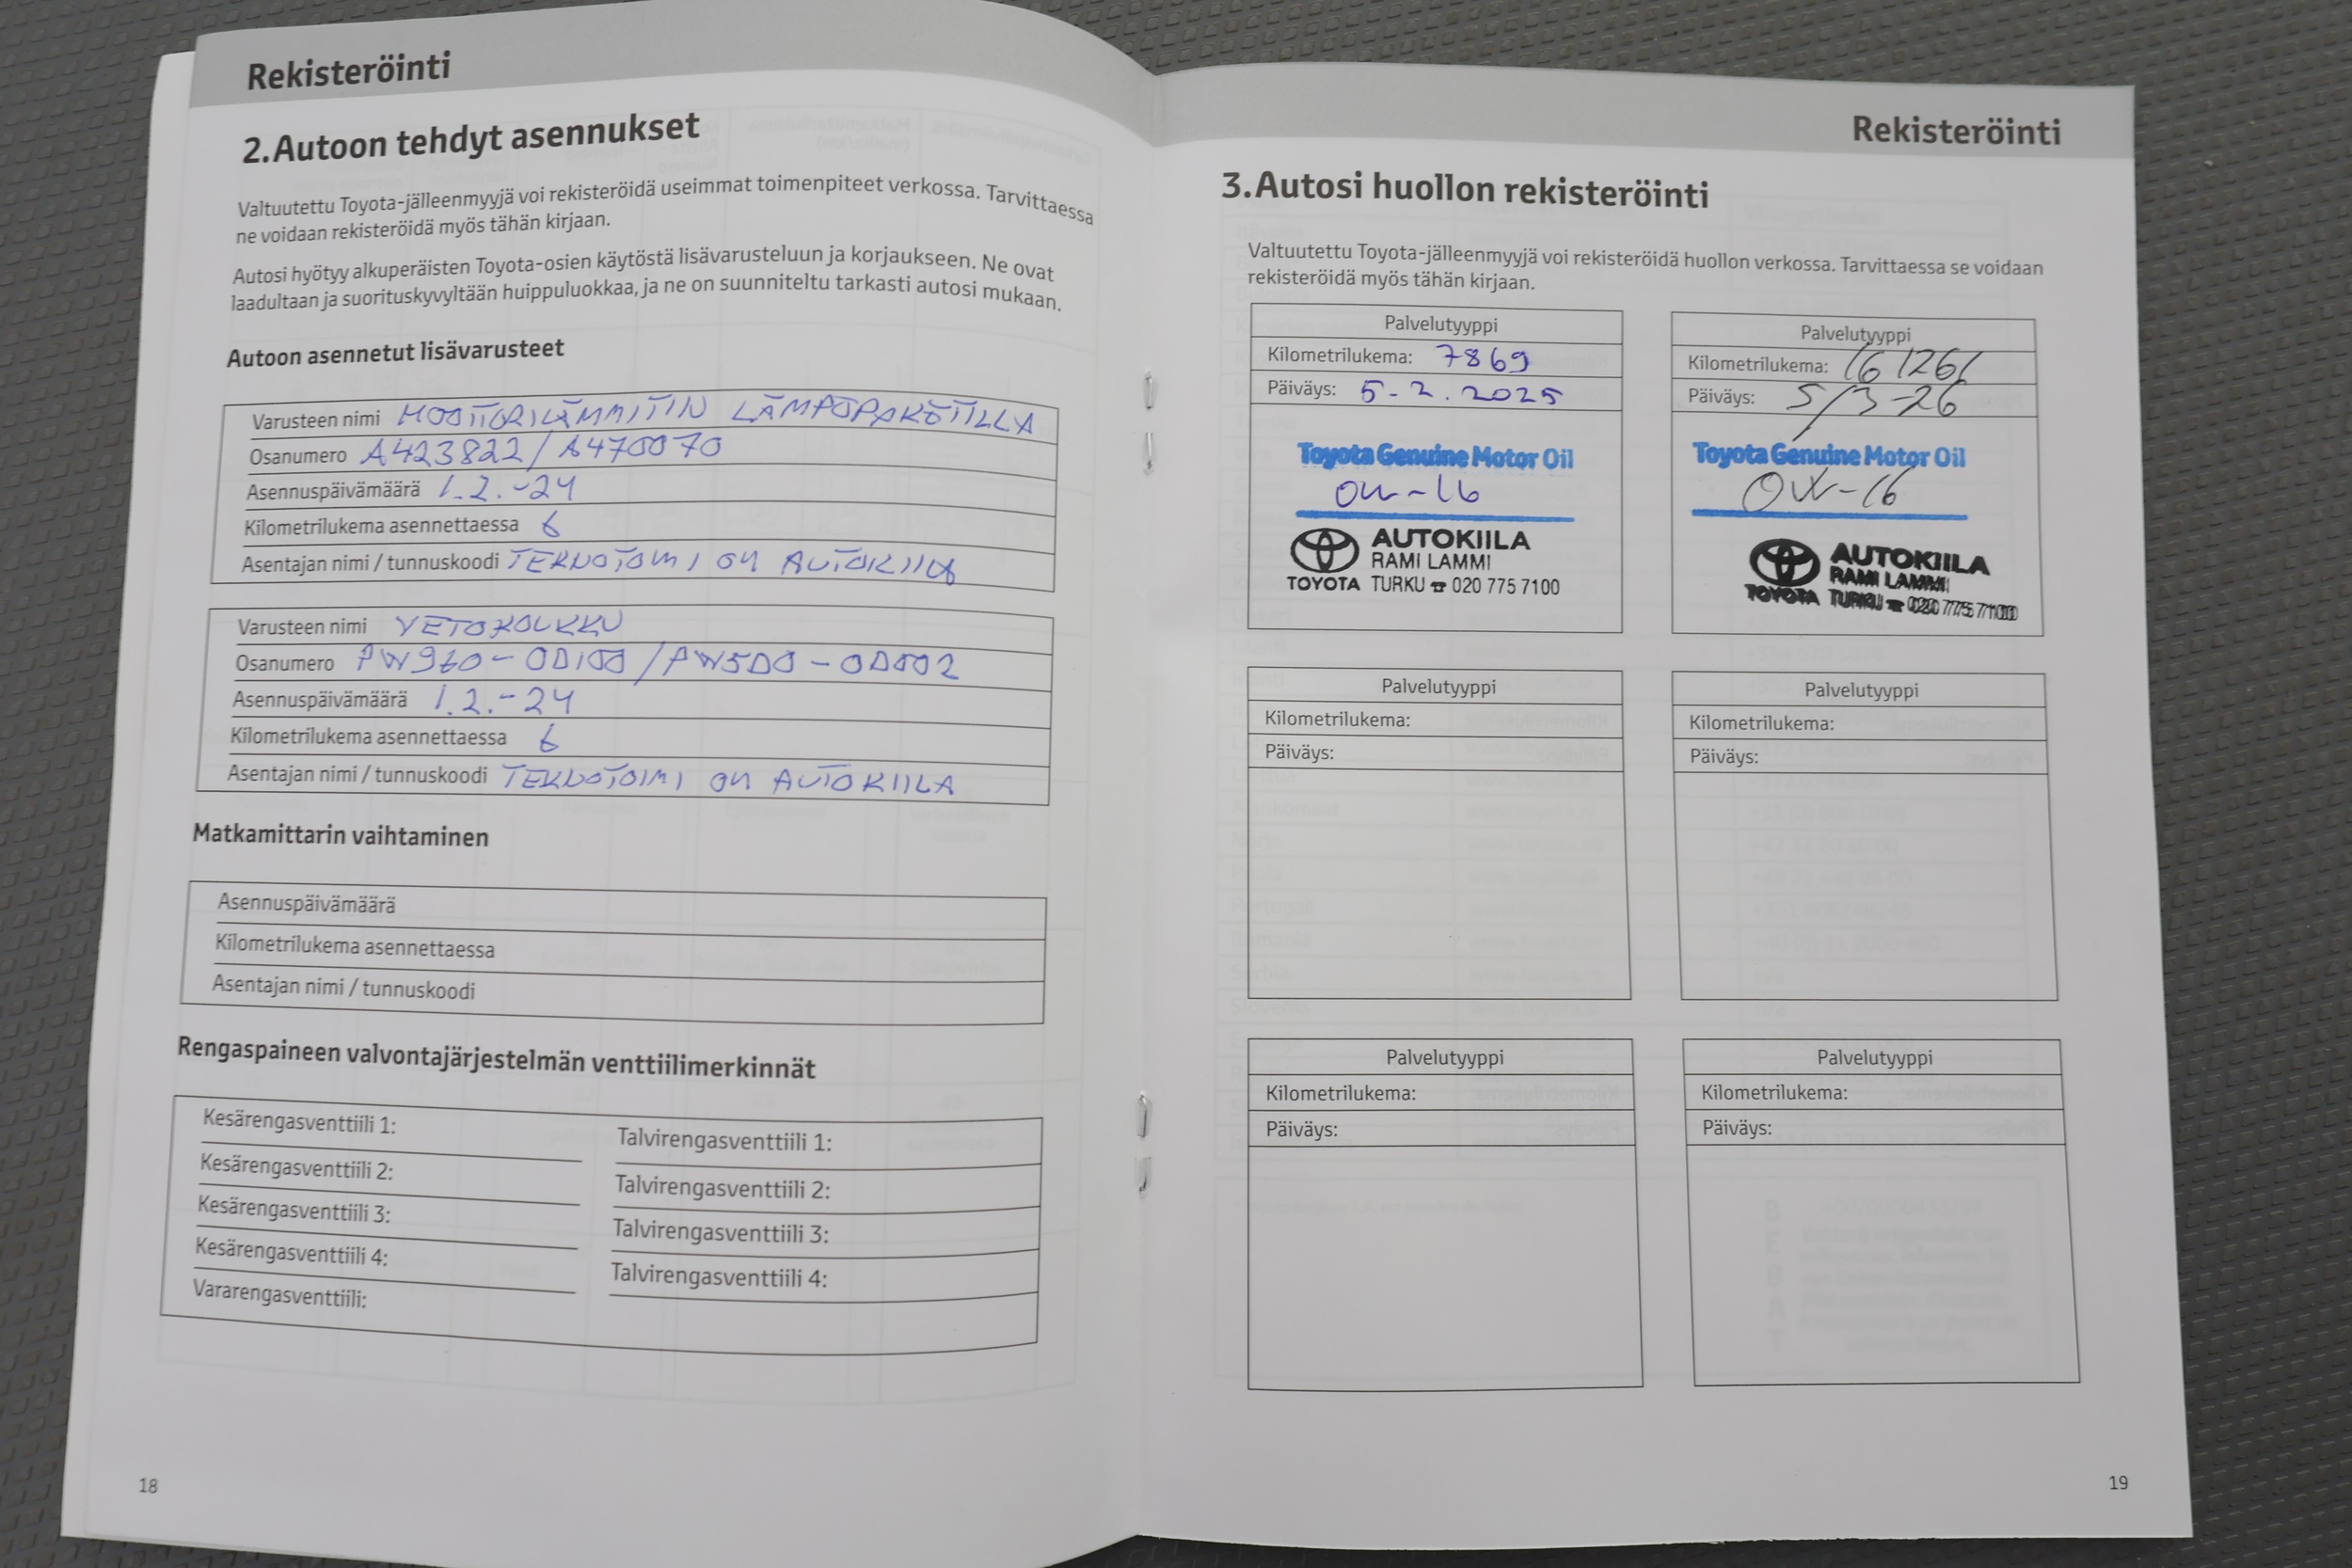 Rekisteröinti
2.Autoon tehdyt asennukset
Valtuutettu Toyota-jälleenmyyjä voi rekisteröidä useimmat toimenpiteet verkossa. Tarvittaessa
ne voidaan rekisteröidä myös tähän kirjaan.
Autosi hyötyy alkuperäisten Toyota-osien käytöstä lisävarusteluun ja korjaukseen. Ne ovat
laadultaan ja suorituskyvyltään huippuluokkaa, ja ne on suunniteltu tarkasti autosi mukaan.
Autoon asennetut lisävarusteet
Varusteen nimi MOOTTORILÄMMITIN LÄMPÖPAKETILLA
Osanumero A423822/A470070
Asennuspäivämäärä 1.2.-24
Kilometrilukema asennettaessa 6
Asentajan nimi / tunnuskoodi TEKNOTOIMI OY AUTOKIILA
Varusteen nimi VETOKOUKKU
Osanumero PW960-0D100/PW5D0-0D002
Asennuspäivämäärä 1.2.-24
Kilometrilukema asennettaessa 6
Asentajan nimi / tunnuskoodi TEKNOTOIMI OY AUTOKIILA
Matkamittarin vaihtaminen
Asennuspäivämäärä
Kilometrilukema asennettaessa
Asentajan nimi / tunnuskoodi
Rengaspaineen valvontajärjestelmän venttiilimerkinnät
Kesärengasventtiili 1: Talvirengasventtiili 1:
Kesärengasventtiili 2: Talvirengasventtiili 2:
Kesärengasventtiili 3: Talvirengasventtiili 3:
Kesärengasventtiili 4: Talvirengasventtiili 4:
Vararengasventtiili:
18
Rekisteröinti
3.Autosi huollon rekisteröinti
Valtuutettu Toyota-jälleenmyyjä voi rekisteröidä huollon verkossa. Tarvittaessa se voidaan
rekisteröidä myös tähän kirjaan.
Palvelutyyppi
Kilometrilukema: 7869
Päiväys: 5-2.2025
Toyota Genuine Motor Oil
0W-16
AUTOKIILA
RAMI LAMMI
TOYOTA TURKU ☎ 020 775 7100
Palvelutyyppi
Kilometrilukema: 161261
Päiväys: 5/3-26
Toyota Genuine Motor Oil
0W-16
AUTOKIILA
RAMI LAMMI
TOYOTA TURKU ☎ 020 775 7100
Palvelutyyppi
Kilometrilukema:
Päiväys:
Palvelutyyppi
Kilometrilukema:
Päiväys:
Palvelutyyppi
Kilometrilukema:
Päiväys:
Palvelutyyppi
Kilometrilukema:
Päiväys:
19